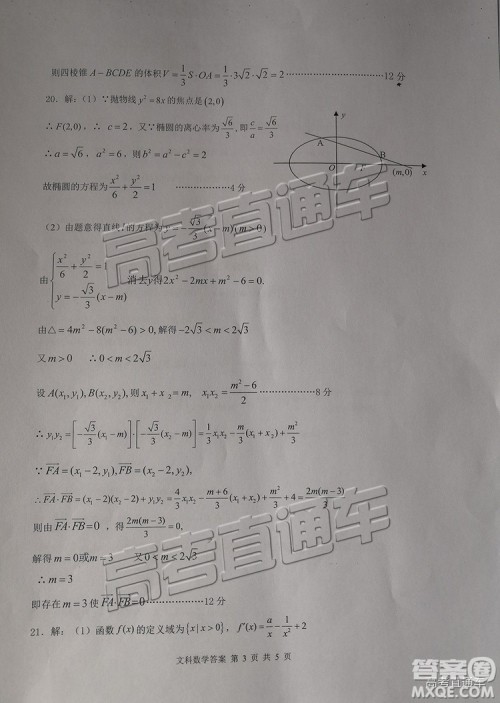 则四棱锥 A−BCDE 的体积 V = 1/3 S·OA = 1/3·3√2·√2 = 2 ………………12 分
20. 解:(1) ∵抛物线 y² = 8x 的焦点是 (2,0)
∴ F(2,0), ∴ c = 2, 又∵椭圆的离心率为 √6/3, 即 c/a = √6/3
∴ a = √6, a² = 6, 则 b² = a² − c² = 2
故椭圆的方程为 x²/6 + y²/2 = 1 ………4 分
y
A
B
F
(m,0)
x
(2) 由题意得直线 l 的方程为 y = −√3/3 (x − m)(m > 0)
由 { x²/6 + y²/2 = 1
y = −√3/3 (x − m)
消去 y 得 2x² − 2mx + m² − 6 = 0.
由 △ = 4m² − 8(m² − 6) > 0, 解得 −2√3 < m < 2√3
又 m > 0 ∴ 0 < m < 2√3
设 A(x₁, y₁), B(x₂, y₂), 则 x₁ + x₂ = m, x₁x₂ = (m² − 6)/2 ………8 分
∴ y₁y₂ = [−√3/3 (x₁ − m)]·[−√3/3 (x₂ − m)] = 1/3 x₁x₂ − m/3 (x₁ + x₂) + m²/3
∵ FA = (x₁ − 2, y₁), FB = (x₂ − 2, y₂),
∴ FA·FB = (x₁ − 2)(x₂ − 2) + y₁y₂ = 4/3 x₁x₂ − (m + 6)/3 (x₁ + x₂) + m²/3 + 4 = 2m(m − 3)/3
则由 FA·FB = 0, 得 2m(m − 3)/3 = 0
解得 m = 0 或 m = 3 又 0 < m < 2√3
∴ m = 3
即存在 m = 3 使 FA·FB = 0 ………12 分
21. 解:(1) 函数 f(x) 的定义域为 {x|x > 0}, f′(x) = a/x − 1/x² + 2
文科数学答案 第 3 页 共 5 页
高考直通车
高考直通车
高考直通车
答案圈
MXQE.COM